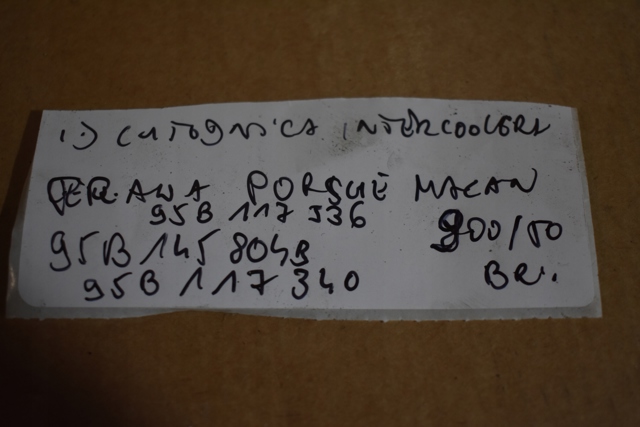 1.) CHŁODNICA INTERCOOLERA
PORSCHE MACAN
95B 117 336
95B 145 804B 900/50
95B 117 340 BR.